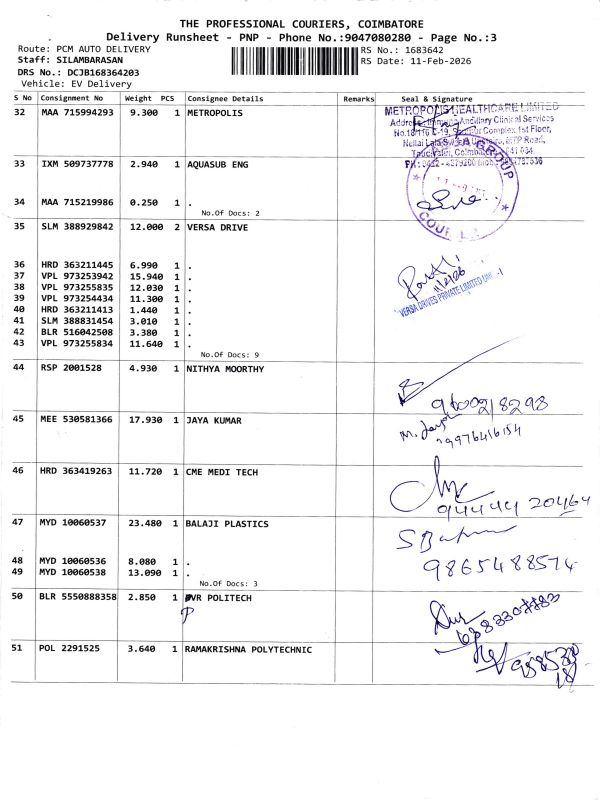 THE PROFESSIONAL COURIERS, COIMBATORE
Delivery Runsheet - PNP - Phone No.:9047080280 - Page No.:3
Route: PCM AUTO DELIVERY RS No.: 1683642
Staff: SILAMBARASAN RS Date: 11-Feb-2026
DRS No.: DCJB168364203
Vehicle: EV Delivery
S No Consignment No Weight PCS Consignee Details Remarks Seal & Signature
32 MAA 715994293 9.300 1 METROPOLIS
METROPOLIS HEALTHCARE LIMITED
Ancillary Clinical Services
Complex 1st Floor,
Road,
33 IXM 509737778 2.940 1 AQUASUB ENG
GROUP
34 MAA 715219986 0.250 1 .
No.Of Docs: 2
35 SLM 388929842 12.000 2 VERSA DRIVE
36 HRD 363211445 6.990 1 .
37 VPL 973253942 15.940 1 .
38 VPL 973255835 12.030 1 .
39 VPL 973254434 11.300 1 .
40 HRD 363211413 1.440 1 .
41 SLM 388831454 3.010 1 .
42 BLR 516042508 3.380 1 .
43 VPL 973255834 11.640 1 .
11/2/26
VERSA DRIVES PRIVATE LIMITED
No.Of Docs: 9
44 RSP 2001528 4.930 1 NITHYA MOORTHY
9600218298
45 MEE 530581366 17.930 1 JAYA KUMAR
46 HRD 363419263 11.720 1 CME MEDI TECH
94444 20464
47 MYD 10060537 23.480 1 BALAJI PLASTICS
48 MYD 10060536 8.080 1 .
49 MYD 10060538 13.090 1 .
9865488574
No.Of Docs: 3
50 BLR 5550888358 2.850 1 PVR POLITECH
P
51 POL 2291525 3.640 1 RAMAKRISHNA POLYTECHNIC